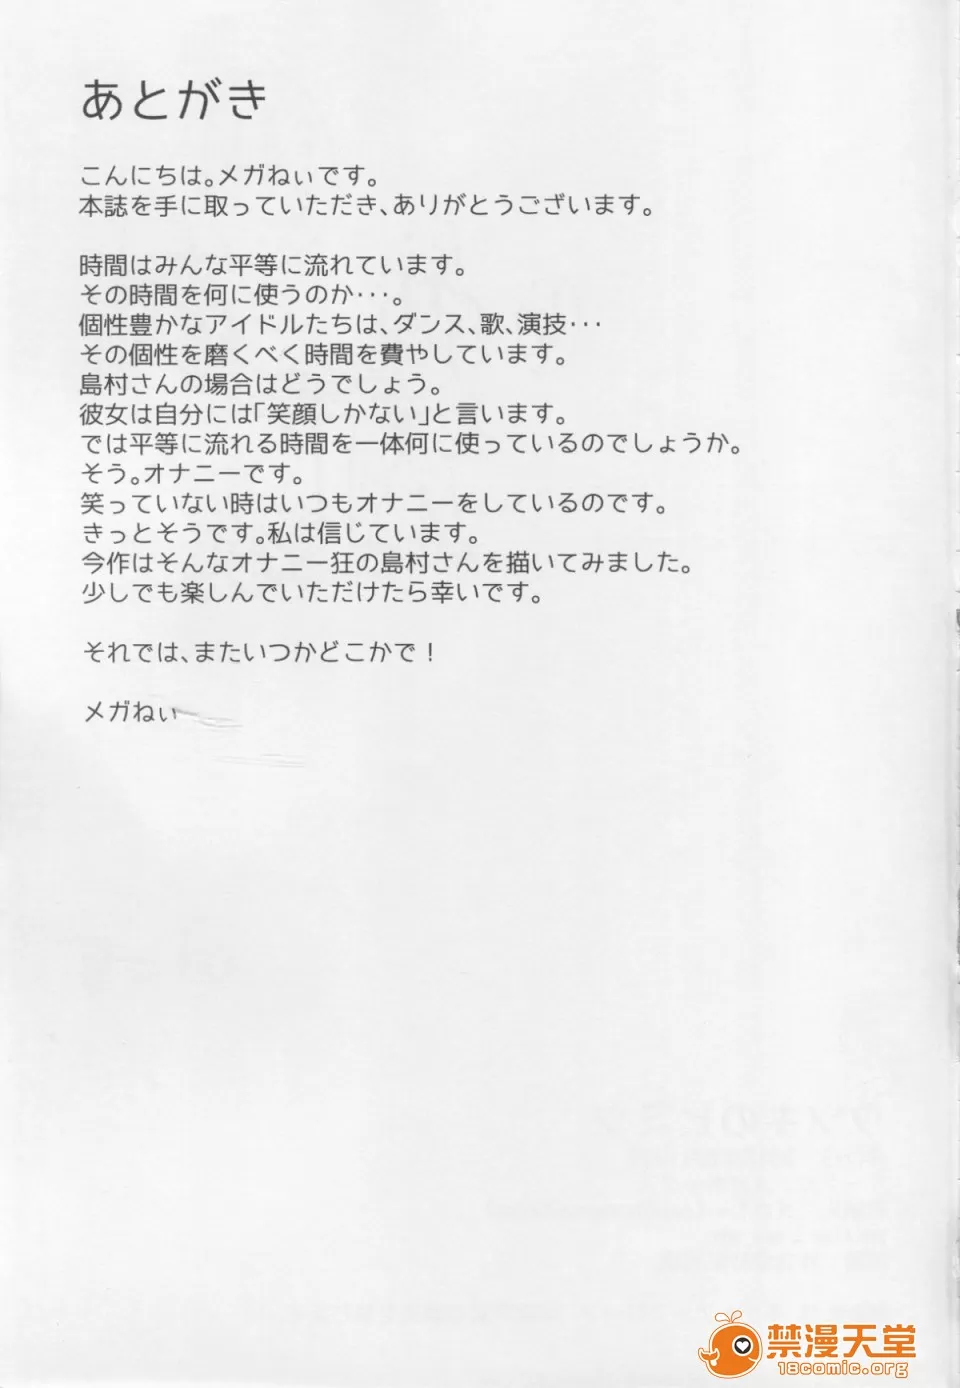 あとがき
こんにちは。メガねぃです。
本誌を手に取っていただき、ありがとうございます。
時間はみんな平等に流れています。
その時間を何に使うのか･･･。
個性豊かなアイドルたちは、ダンス、歌、演技･･･
その個性を磨くべく時間を費やしています。
島村さんの場合はどうでしょう。
彼女は自分には｢笑顔しかない｣と言います。
では平等に流れる時間を一体何に使っているのでしょうか。
そう。オナニーです。
笑っていない時はいつもオナニーをしているのです。
きっとそうです。私は信じています。
今作はそんなオナニー狂の島村さんを描いてみました。
少しでも楽しんでいただけたら幸いです。
それでは、またいつかどこかで！
メガねぃ
禁漫天堂
18comic.org